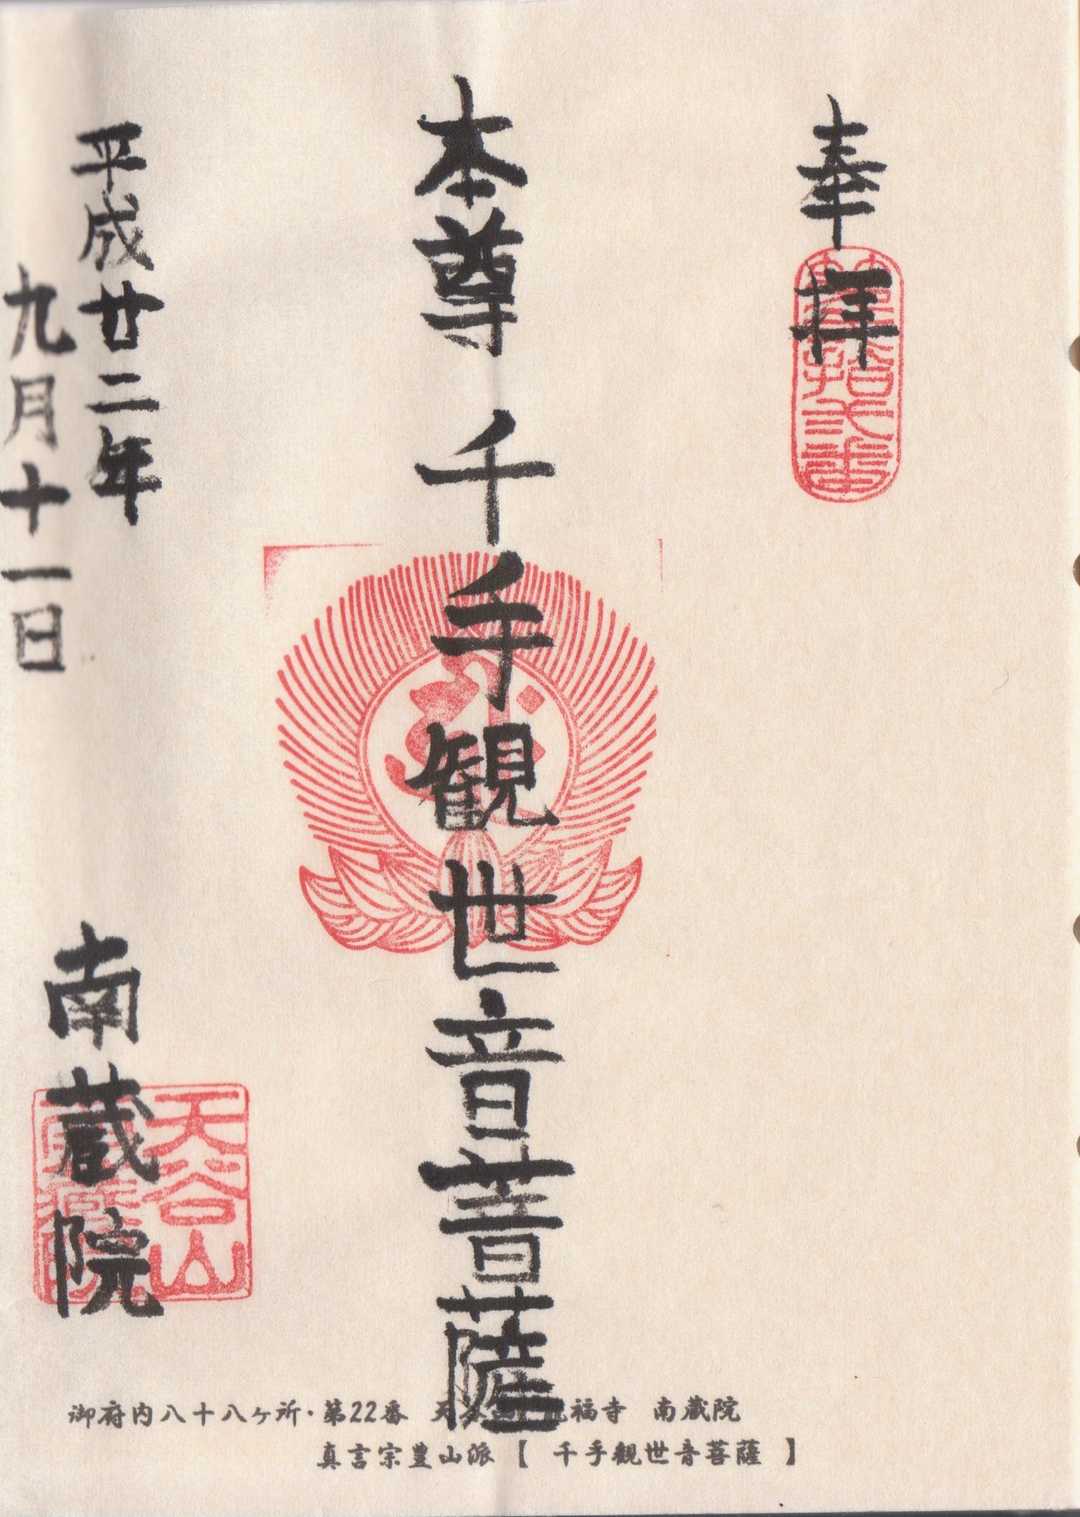 奉拝
本尊 千手観世音菩薩
平成廿二年
九月十一日
南蔵院
天谷山
御府内八十八ヶ所・第22番 天 福寺 南蔵院
真言宗豊山派【 千手観世音菩薩 】